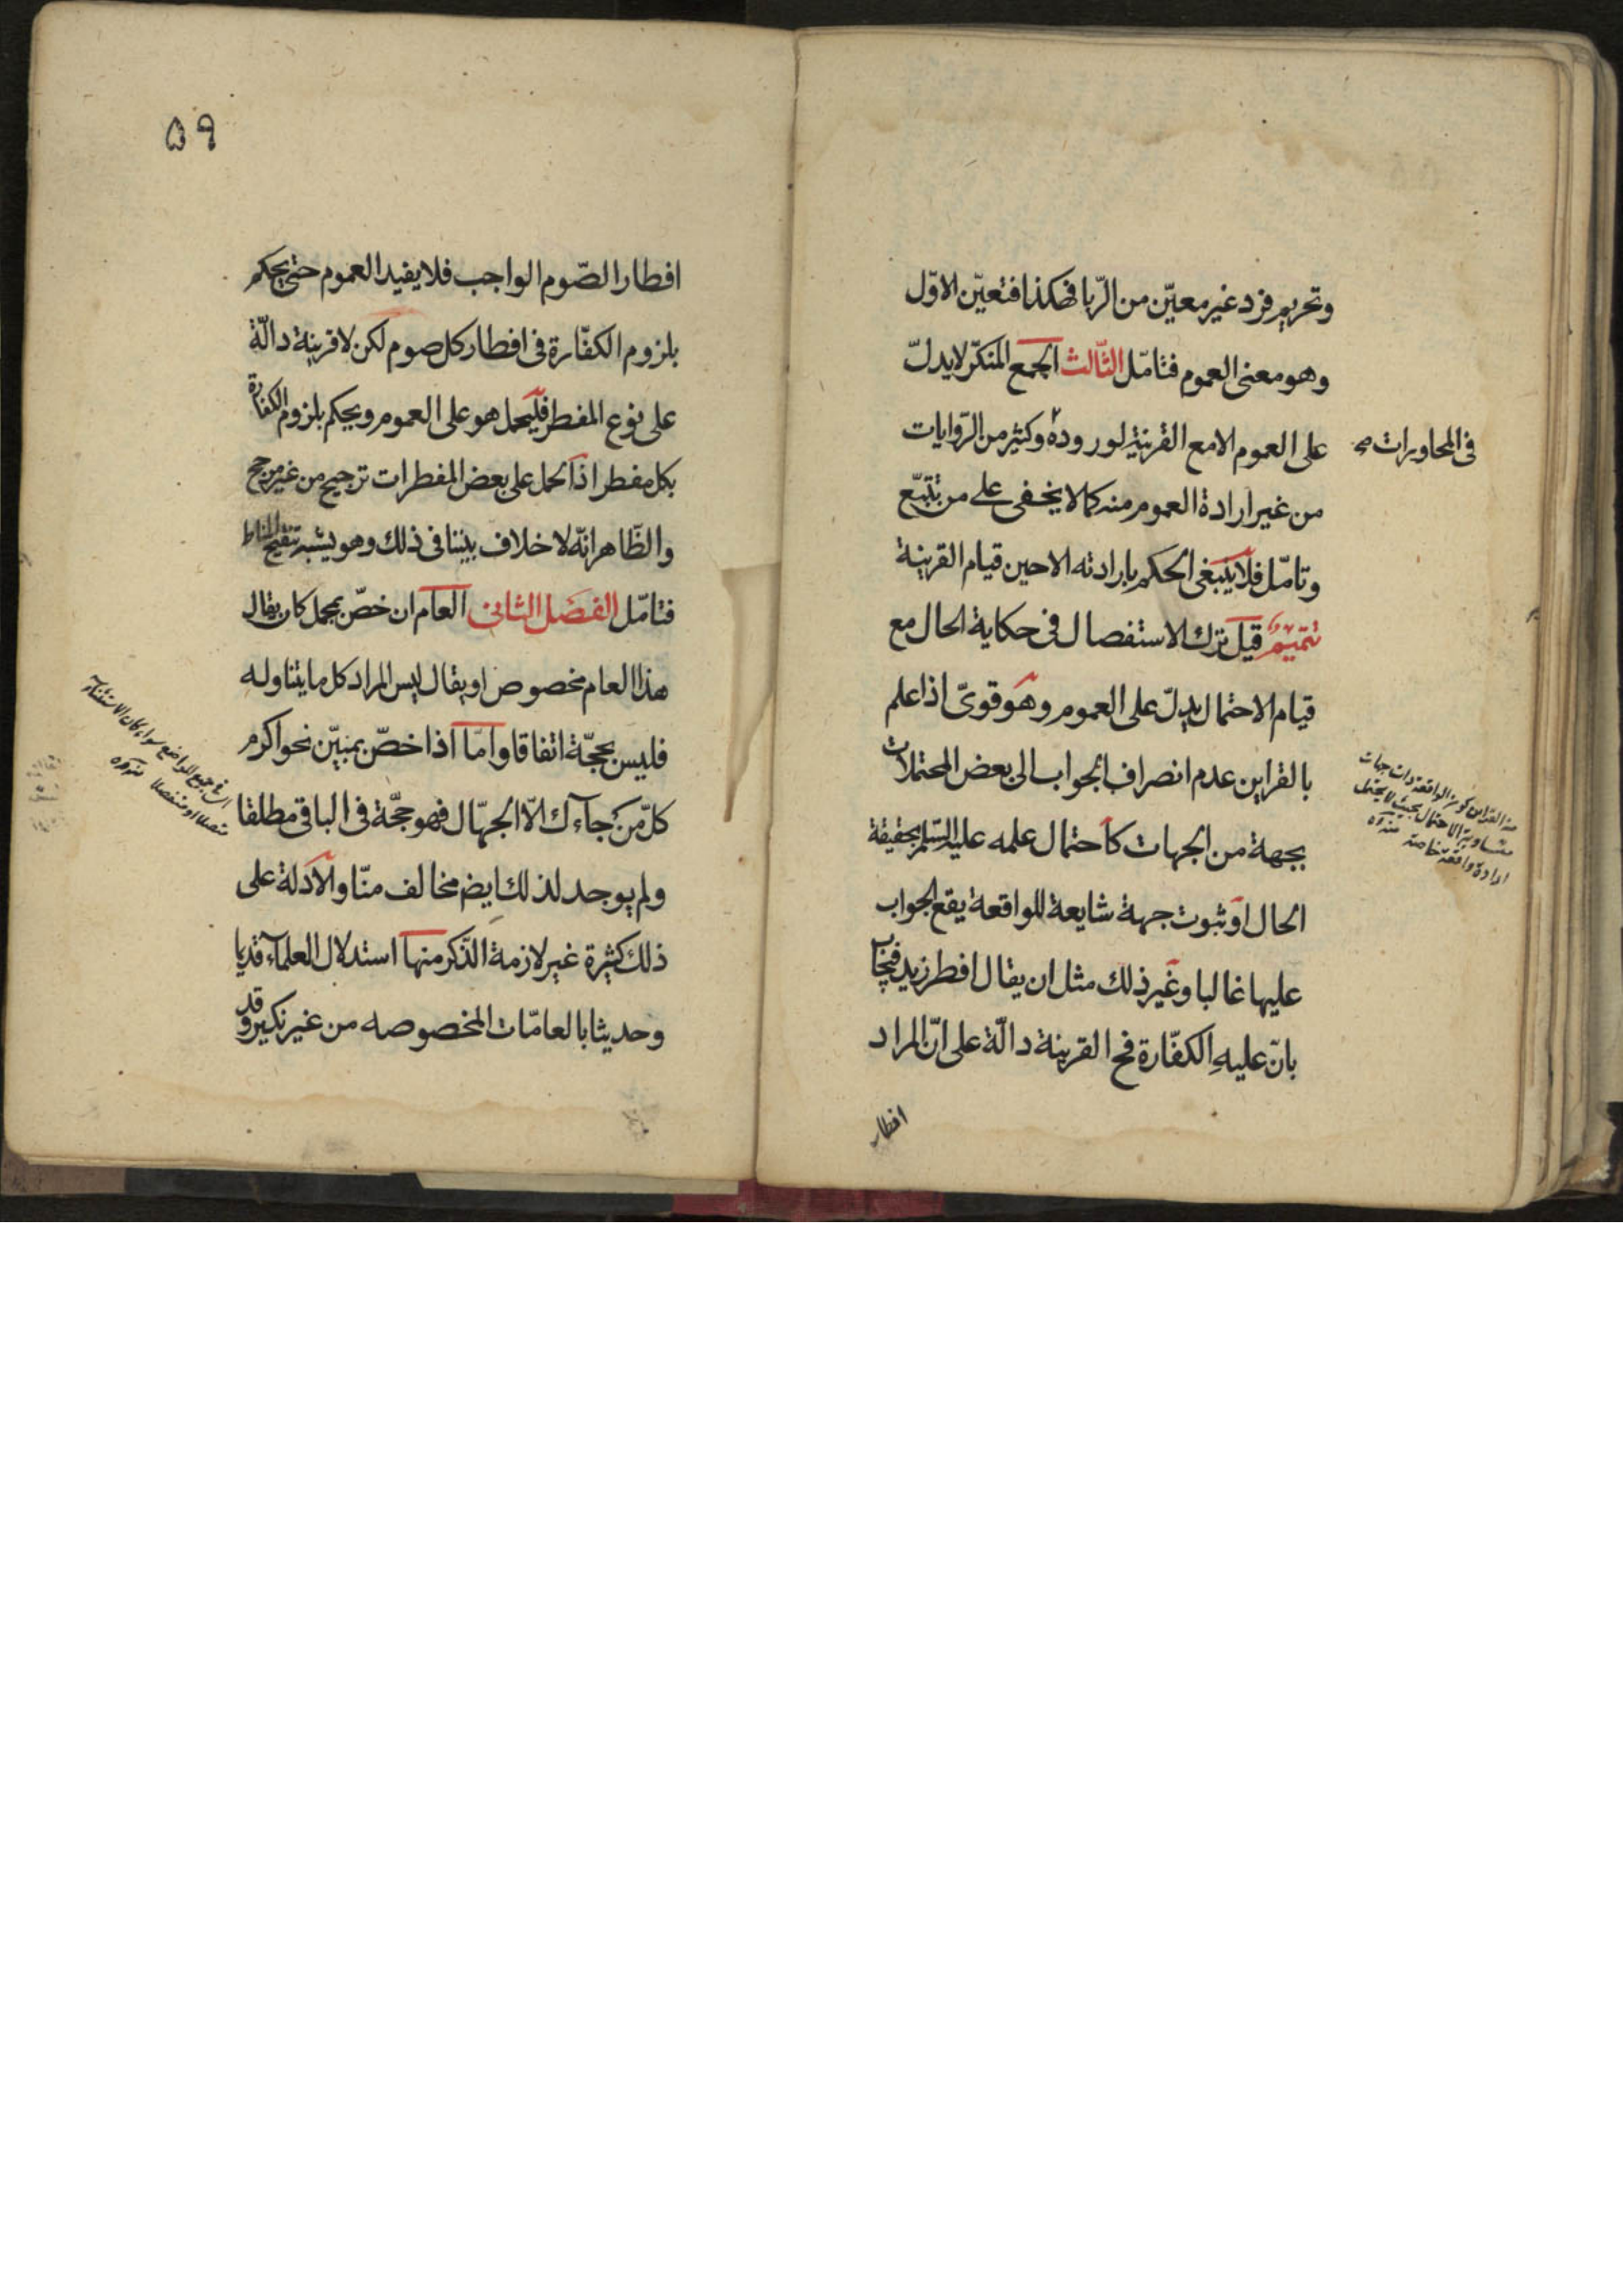 وتحريم فرد غير معيّن من الرّبا فكذا فتعيّن الاوّل
وهو معنى العموم فتامّل الثّالث الجمع المنكّر لا يدلّ
على العموم الا مع القرينة لوروده وكثير من الرّوايات
في المحاورات صح
من غير ارادة العموم منه كما لا يخفى على من تتبّع
وتامّل فلا ينبغى الحكم بارادته الا حين قيام القرينة
تتميم قيل ترك الاستفصال فى حكاية الحال مع
قيام الاحتمال يدلّ على العموم وهو قوىّ اذا علم
بالقراين عدم انصراف الجواب الى بعض المحتملات
بجهة من الجهات كاحتمال علمه عليه السّلم بحقيقة
الحال او ثبوت جهة شايعة للواقعة يقع الجواب
عليها غالبا وغير ذلك مثل ان يقال افطر زيد فيجاب
بانّ عليه الكفّارة فح القرينة دالّة على انّ المراد
الواقعة ذات جهات
متساوية الاحتمال بحيث لا يحتمل
ارادة واقعة خاصة منه ره
افطار
۵۹
افطار الصّوم الواجب فلا يفيد العموم حتى يحكم
بلزوم الكفّارة فى افطار كل صوم لكن لا قرينة دالّة
على نوع المفطر فليحمل هو على العموم ويحكم بلزوم الكفارة
بكل مفطر اذ الحمل على بعض المفطرات ترجيح من غير مرجح
والظّاهر انّه لا خلاف بيننا فى ذلك وهو يشبه تنقيح المناط
فتامّل الفصل الثانى العام ان خصّ بمجمل كان يقال
هذا العام مخصوص او يقال ليس المراد كل ما يتناوله
فليس بحجّة اتفاقا وامّا اذا خصّ بمبيّن نحو اكرم
كلّ من جآءك الّا الجهّال فهو حجّة فى الباقى مطلقا
ولم يوجد لذلك ايضم مخالف منّا والادلة على
ذلك كثيرة غير لازمة الذّكر منها استدلال العلمآء قديا
وحديثا بالعامّات المخصوصه من غير نكير وقد
جميع المواضع سواء كان الاستثناء
متصلا او منفصلا منه ره